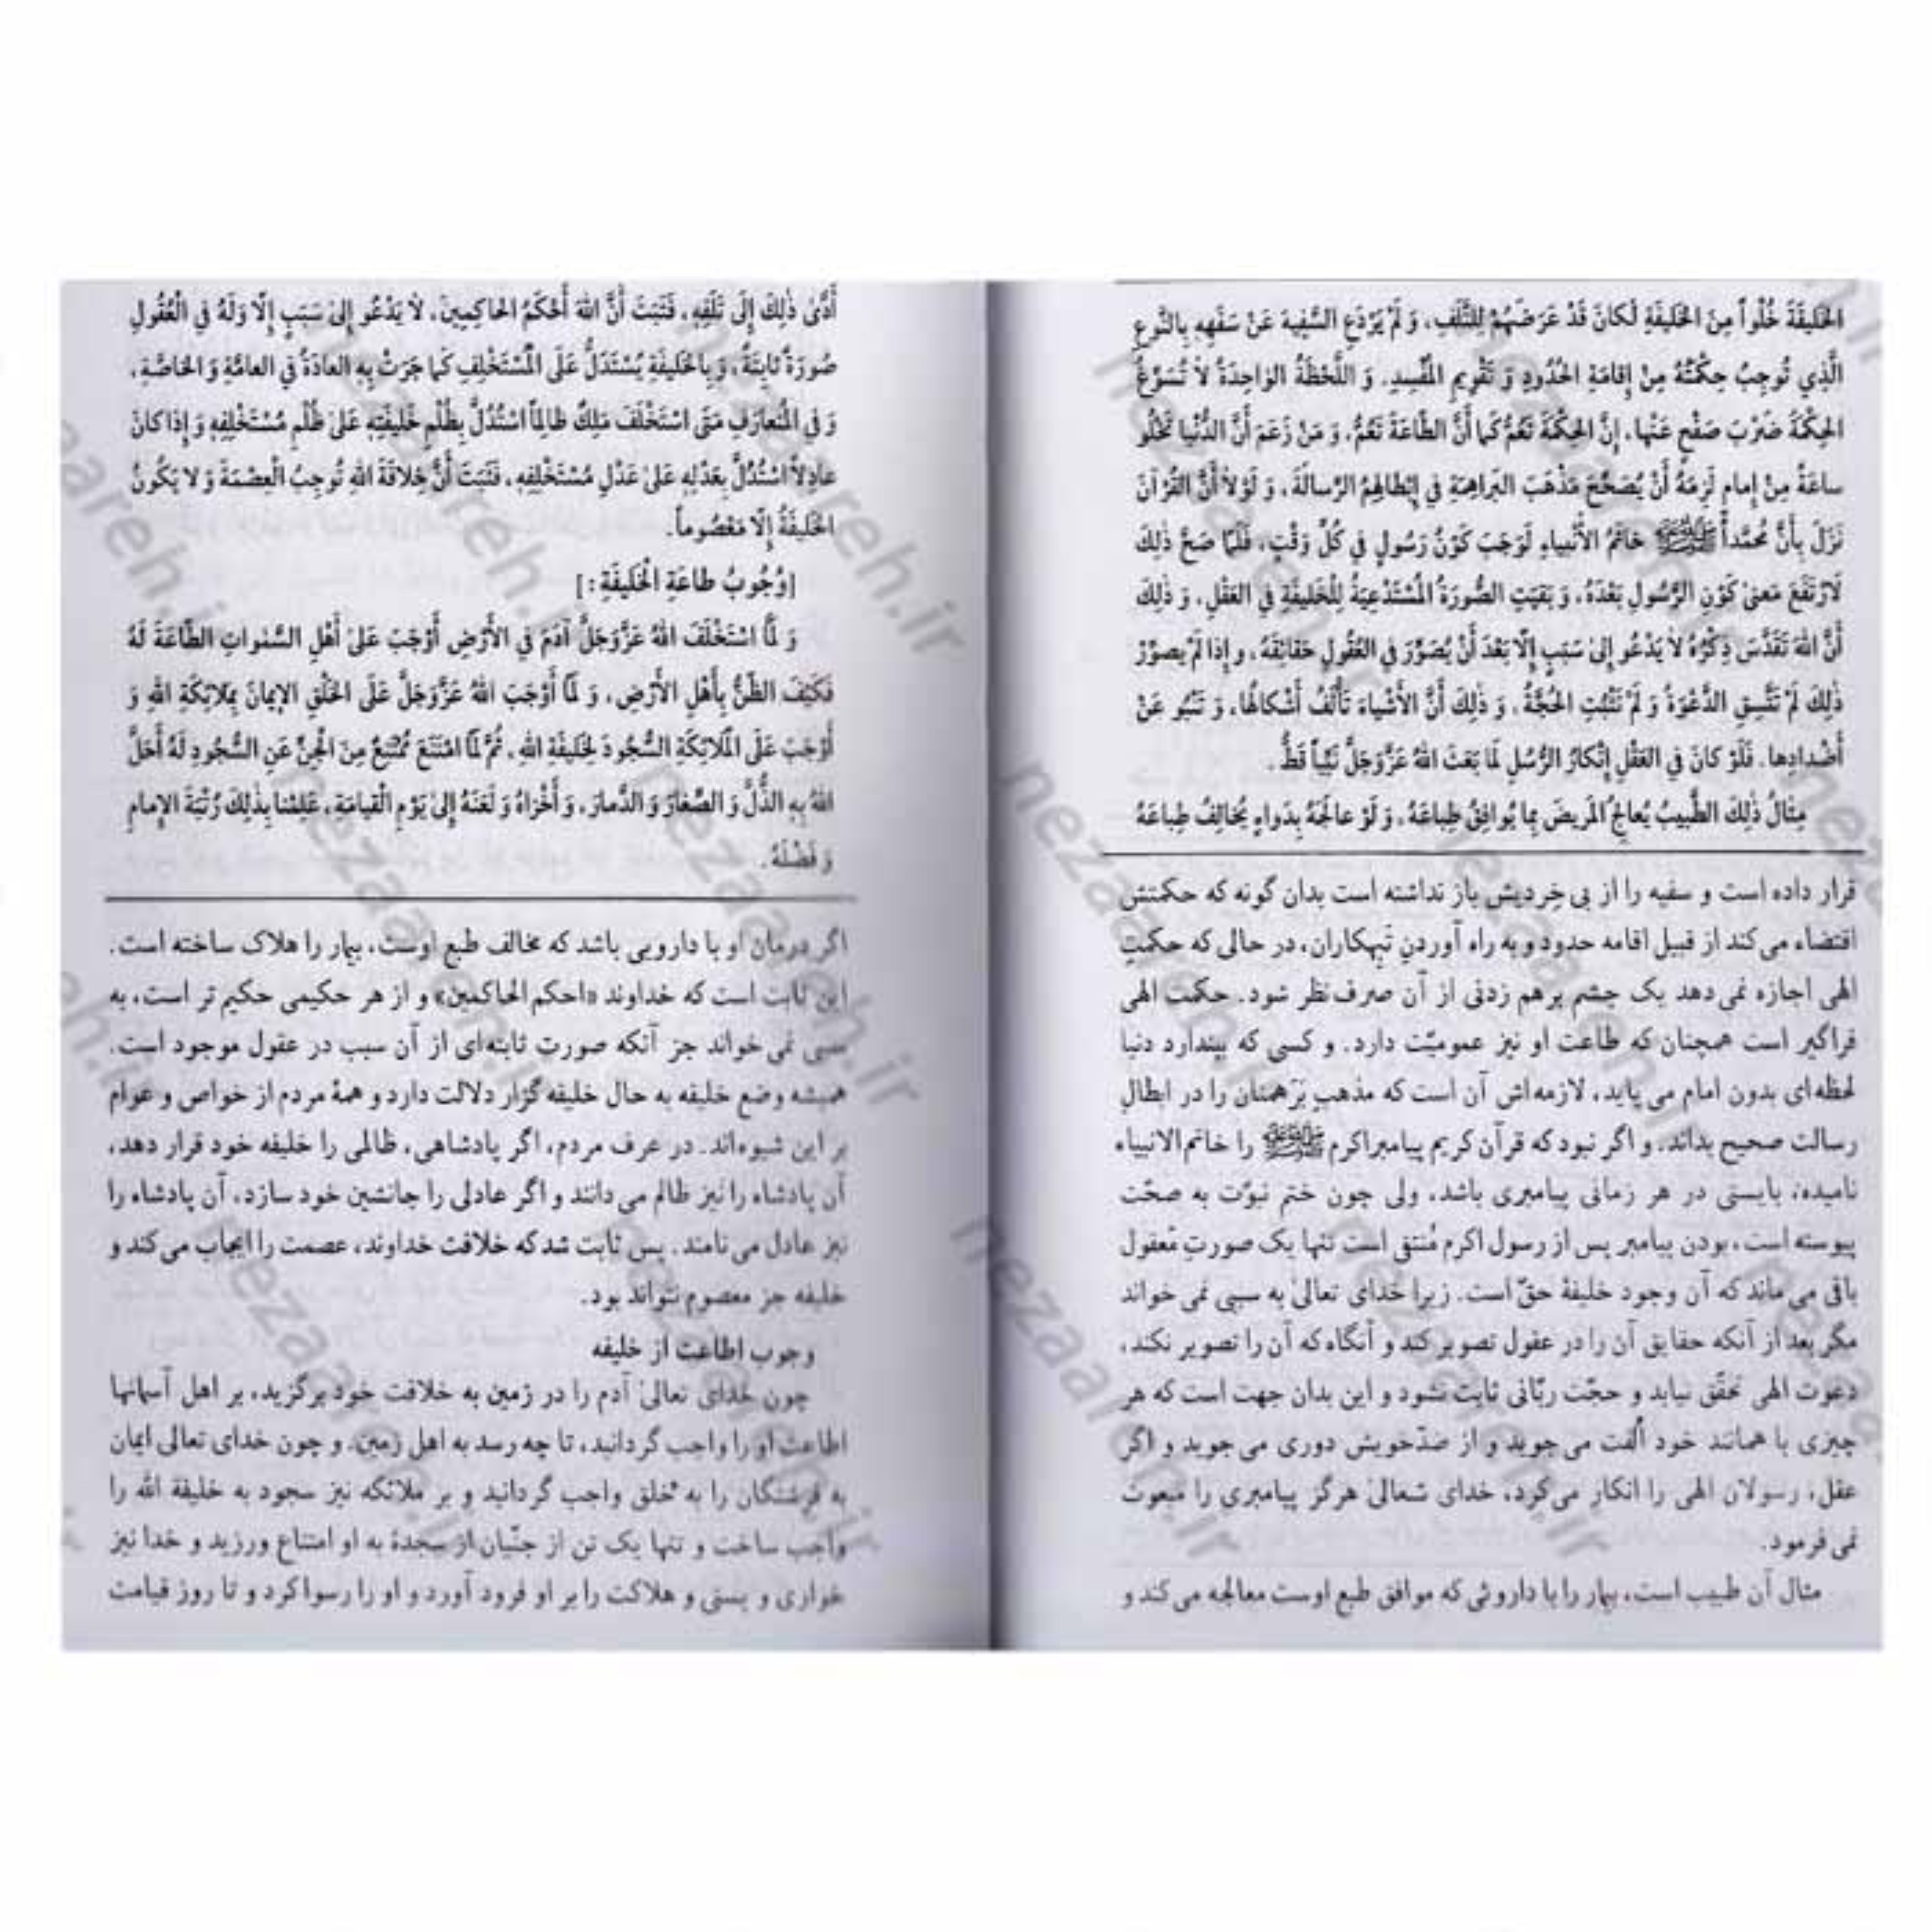 الخَلیقَةَ خُلُواً مِنَ الخَلیفَةِ لَکانَ قَدْ عَرَضَهُمْ لِلتَّلَفِ، وَ لَمْ یَرْدَعِ السَّفِیهَ عَنْ سَفَهِهِ بِالنَّوعِ
الَّذِي تُوجِبُ حِکْمَتُهُ مِنْ إِقامَةِ الحُدُودِ وَ تَقْوِیمِ المُفْسِدِ. وَ اللَّحْظَةُ الواحِدَةُ لاٰ تُسَوِّغُ
الحِکْمَةُ ضَرْبَ صَفْحٍ عَنْها. إِنَّ الحِکْمَةَ تَعُمُّ کَما أَنَّ الطّاعَةَ تَعُمُّ، وَ مَنْ زَعَمَ أَنَّ الدُّنْیا تَخْلُو
ساعَةً مِنْ إِمامٍ لَزِمَهُ أَنْ یُصَحِّحَ مَذْهَبَ البَراهِمَةِ فِي إِبْطالِهِمُ الرِّسالَةَ، وَ لَوْلاٰ أَنَّ القُرْآنَ
نَزَلَ بِأَنَّ مُحَمَّداً ﷺ خاتَمُ الأَنْبِیاءِ لَوَجَبَ کَوْنُ رَسُولٍ فِي کُلِّ وَقْتٍ، فَلَمّا صَحَّ ذٰلِكَ
لَارْتَفَعَ مَعنیٰ کَوْنِ الرَّسُولِ بَعْدَهُ، وَ بَقِیَتِ الصُّورَةُ المُسْتَدْعِیَةُ لِلْخَلِیفَةِ فِي العَقْلِ، وَ ذٰلِكَ
أَنَّ اللهَ تَقَدَّسَ ذِکْرُهُ لاٰ یَدْعُو إِلیٰ سَبَبٍ إِلّا بَعْدَ أَنْ یُصَوِّرَ فِي العُقُولِ حَقائِقَهُ، و إِذا لَمْ یصوّرْ
ذٰلِكَ لَمْ تَتَّسِقِ الدَّعْوَةُ وَ لَمْ تَثْبُتِ الحُجَّةُ، وَ ذٰلِكَ أَنَّ الأَشْیاءَ تَأْلَفُ أَشْکالَها، وَ تَنْبُو عَنْ
أَضْدادِها. فَلَوْ کانَ فِي العَقْلِ إِنْکارُ الرُّسُلِ لَما بَعَثَ اللهُ عَزَّوَجَلَّ نَبِیّاً قَطُّ.
مِثالُ ذٰلِكَ الطَّبِیبُ یُعالِجُ المَرِیضَ بِما یُوافِقُ طِباعَهُ، وَ لَوْ عالَجَهُ بِدَواءٍ یُخالِفُ طِباعَهُ
قرار داده است و سفیه را از بی خِردیش باز نداشته است بدان گونه که حکمتش
اقتضاء می‌کند از قبیل اقامه حدود و به راه آوردنِ تَبهکاران، در حالی که حکمتِ
الهی اجازه نمی‌دهد یک چشم برهم زدنی از آن صرف نظر شود. حکمت الهی
فراگیر است همچنان که طاعت او نیز عمومیّت دارد. و کسی که بپندارد دنیا
لحظه‌ای بدون امام می‌پاید، لازمه‌اش آن است که مذهبِ بَرَهمنان را در ابطالِ
رسالت صحیح بداند. و اگر نبود که قرآن کریم پیامبراکرم ﷺ را خاتم‌الانبیاء
نامیده، بایستی در هر زمانی پیامبری باشد، ولی چون ختم نبوّت به صحّت
پیوسته است، بودن پیامبر پس از رسول اکرم مُنتفی است تنها یک صورتِ مَعقول
باقی می‌ماند که آن وجود خلیفهٔ حقّ است. زیرا خدای تعالیٰ به سببی نمی‌خواند
مگر بعد از آنکه حقایق آن را در عقول تصویر کند و آنگاه که آن را تصویر نکند،
دعوت الهی تحقّق نیابد و حجّت ربّانی ثابت نشود و این بدان جهت است که هر
چیزی با همانند خود اُلفت می‌جوید و از ضدّخویش دوری می‌جوید و اگر
عقل، رسولان الهی را انکار می‌کرد، خدای متعالیٰ هرگز پیامبری را مبعوث
نمی‌فرمود.
مثال آن طبیب است، بیمار را با داروئی که موافق طبع اوست معالجه می‌کند و
أَدّیٰ ذٰلِكَ إِلَی تَلَفِهِ، فَثَبَتَ أَنَّ اللهَ أَحْکَمُ الحاکِمِینَ، لاٰ یَدْعُو إِلیٰ سَبَبٍ إِلّا وَلَهُ فِي الْعُقُولِ
صُورَةٌ ثابِتَةٌ، وَ بِالخَلِیفَةِ یُسْتَدَلُّ عَلَی الْمُسْتَخْلِفِ کَما جَرَتْ بِهِ العادَةُ فِي العامَّةِ وَ الخاصَّةِ،
وَ فِي الْمُتَعارَفِ مَتیٰ اسْتَخْلَفَ مَلِكٌ ظالِماً اسْتُدُلَّ بِظُلْمِ خَلِیفَتِهِ عَلیٰ ظُلْمِ مُسْتَخْلِفِهِ وَ إِذا کانَ
عادِلاً اسْتُدُلَّ بِعَدْلِهِ عَلیٰ عَدْلِ مُسْتَخْلِفِهِ، فَثَبَتَ أَنَّ خِلافَةَ اللهِ تُوجِبُ الْعِصْمَةَ وَ لا یَکُونُ
الخَلِیفَةُ إِلّا مَعْصُوماً.
[وُجُوبُ طاعَةِ الْخَلِیفَةِ:]
وَ لَمَّا اسْتَخْلَفَ اللهُ عَزَّوَجَلَّ آدَمَ فِي الأَرْضِ أَوْجَبَ عَلیٰ أَهْلِ السَّمٰواتِ الطّاعَةَ لَهُ
فَکَیْفَ الظَّنُّ بِأَهْلِ الأَرْضِ، وَ لَمّا أَوْجَبَ اللهُ عَزَّوَجَلَّ عَلَی الخَلْقِ الإیمانَ بِمَلائِکَةِ اللهِ وَ
أَوْجَبَ عَلَی الْمَلائِکَةِ السُّجُودَ لِخَلِیفَةِ اللهِ، ثُمَّ لَمّا امْتَنَعَ مُمْتَنِعٌ مِنَ الْجِنِّ عَنِ السُّجُودِ لَهُ أَحَلَّ
اللهُ بِهِ الذُّلَّ وَ الصَّغارَ وَ الدَّمارَ، وَ أَخْزاهُ وَ لَعَنَهُ إِلیٰ یَوْمِ الْقِیامَةِ، عَلِمْنا بِذٰلِكَ رُتْبَةَ الإِمامِ
وَ فَضْلَهُ.
اگر درمان او با دارویی باشد که مخالف طبع اوست، بیمار را هلاک ساخته است.
این ثابت است که خداوند «احکم الحاکمین» و از هر حکیمی حکیم تر است، به
سببی نمی‌خواند جز آنکه صورتِ ثابته‌ای از آن سبب در عقول موجود است.
همیشه وضع خلیفه به حال خلیفه گزار دلالت دارد و همهٔ مردم از خواص و عوام
بر این شیوه‌اند. در عرف مردم، اگر پادشاهی، ظالمی را خلیفه خود قرار دهد،
آن پادشاه را نیز ظالم می‌دانند و اگر عادلی را جانشین خود سازد، آن پادشاه را
نیز عادل می‌نامند. پس ثابت شد که خلافت خداوند، عصمت را ایجاب می‌کند و
خلیفه جز معصوم نتواند بود.
وجوب اطاعت از خلیفه
چون خدای تعالیٰ آدم را در زمین به خلافت خود برگزید، بر اهل آسمانها
اطاعت او را واجب گردانید، تا چه رسد به اهل زمین. و چون خدای تعالی ایمان
به فرشتگان را به خلق واجب گردانید و بر ملائکه نیز سجود به خلیفة الله را
واجب ساخت و تنها یک تن از جنّیان از سجدهٔ به او امتناع ورزید و خدا نیز
خواری و پستی و هلاکت را بر او فرود آورد و او را رسوا کرد و تا روز قیامت
nezaareh.ir